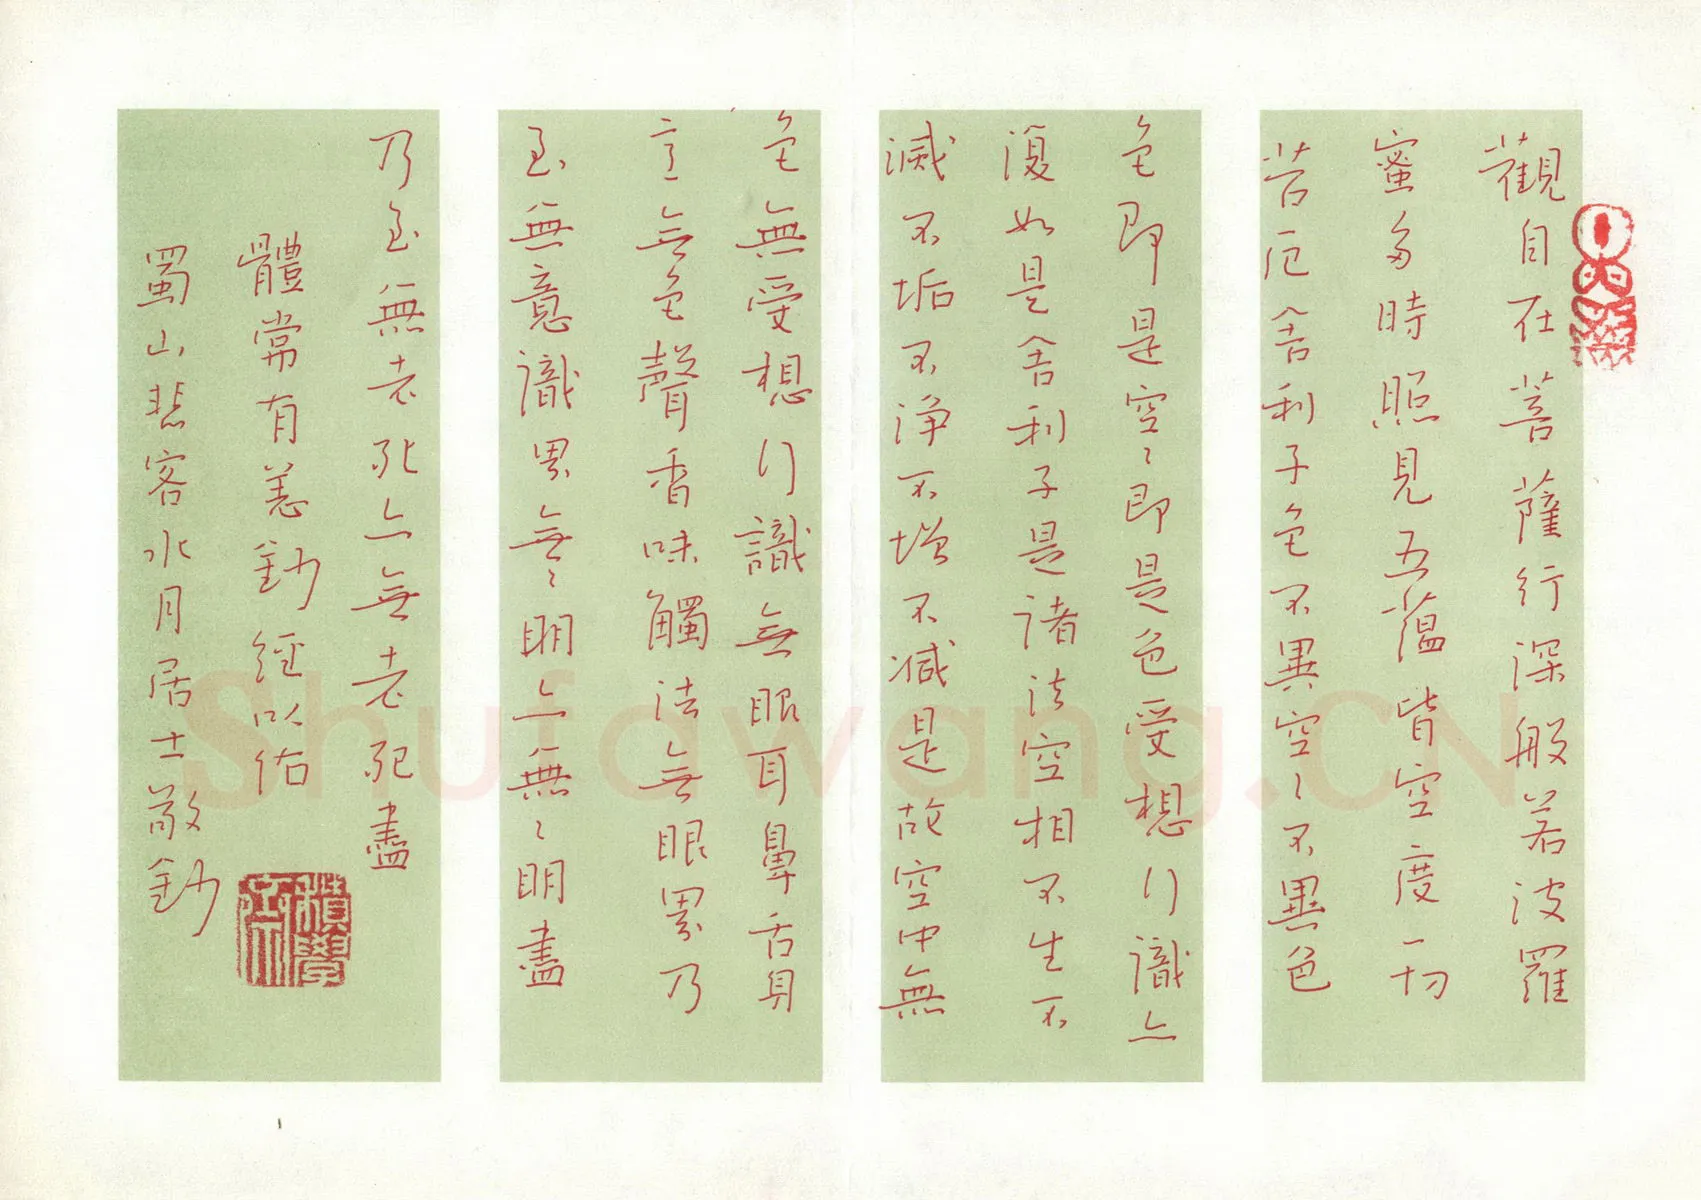 觀自在菩薩行深般若波羅
蜜多時照見五蘊皆空度一切
苦厄舍利子色不異空〻不異色
色即是空〻即是色受想行識亦
復如是舍利子是諸法空相不生不
滅不垢不淨不增不減是故空中無
色無受想行識無眼耳鼻舌身
意無色聲香味觸法無眼界乃
至無意識界無〻明亦無〻明盡
乃至無老死亦無老死盡
體常有恙鈔經以佑
蜀山悲客水月居士敬鈔
Shufawang.CN